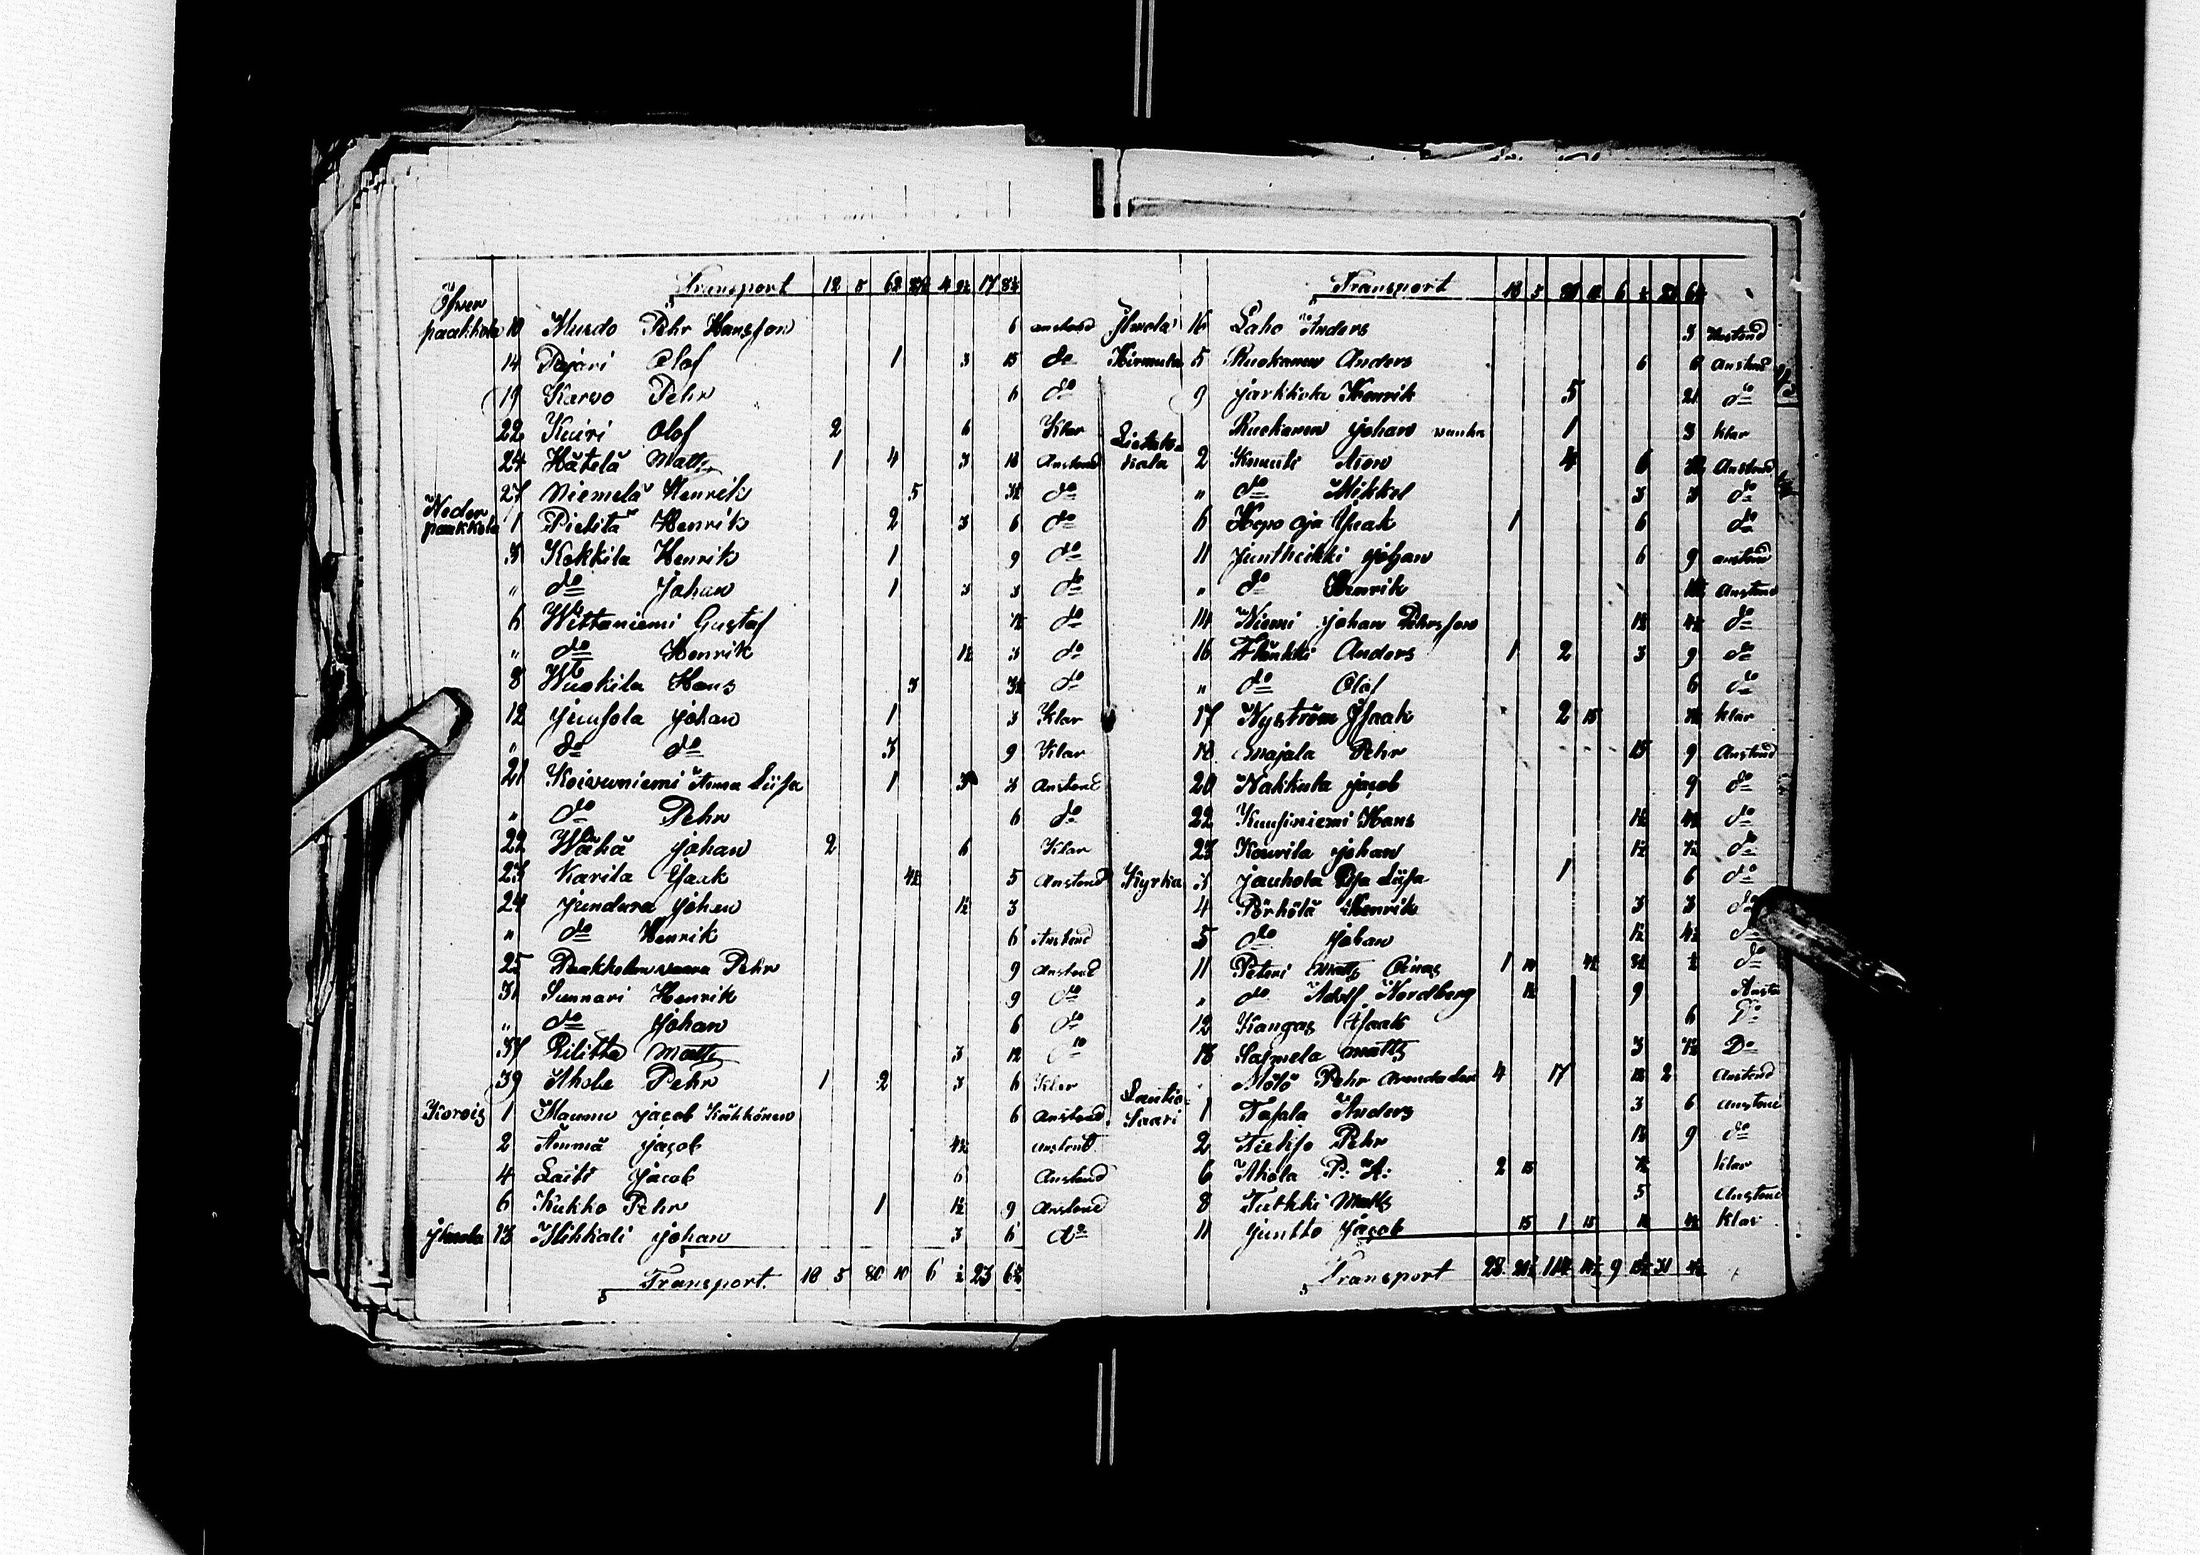 Transport 12 5 62 4 17
Öfver
paakkola 10 Murdo Pehr Hansson 6 anstond
14 Pajari Olof 1 3 15 do
19 Karvo Pehr 6 do
22 Kuiri Olof 2 6 Klar
24 Hätelä Matts 1 4 3 18 Anstond
27 Niemelä Henrik 5 3½ do
Neder
paakkola 1 Pietilä Henrik 2 3 6 do
3 Kekkila Henrik 1 9 do
" do Johan 1 3 3 do
6 Wittaniemi Gustaf 7½ do
" do Henrik 1½ 3 do
8 Wuokila Hans 3 3½ do
12 Juusola Johan 1 3 Klar
" do do 3 9 Klar
21 Koivuniemi Anna Liisa 1 3 3 Anstond
" do Pehr 6 do
22 Wähä Johan 2 6 Klar
23 Karila Isaak 4½ 5 Anstond
24 Jundura Johan 1½ 3
" do Henrik 6 Anstond
25 Paakkolanvaara Pehr 9 Anstond
31 Sunnari Henrik 9 do
" do Johan 6 do
37 Matts 3 12 do
39 Ahola Pehr 1 2 3 6 Klar
Korois 1 Mammu Jacob Kähkönen 6 Anstond
2 Ämmä Jacob 4½ anstond
4 Laiti Jacob 6 Anstond
6 Kukko Pehr 1 1½ 9 Anstond
Ilmola 13 Hikkali Johan 3 6 do
Transport. 18 5 80 10 6 ½ 23 6½
Transport 18 5 80 10 6 ½ 23 6½
Ilmola 16 Laho Anders 3 Anstond
Hirmula 5 Ruokanen Anders 6 6 Anstond
9 Jarkkola Henrik 5 21 do
Ruokanen Johan wanha 1 3 Klar
Lieteks-
kala 2 Knuuti Aron 4 6 Anstond
" do Mikkel 3 3 do
6 Hepo oja Isak 1 6 do
11 Juntheikki Johan 6 9 anstond
" do Henrik Anstond
14 Niemi Johan Pehrsson 1½ 4½ do
16 Flänkki Anders 1 2 3 9 do
" do Olof 6 do
17 Nyström Isaak 2 15 Klar
18 Majala Pehr 15 9 Anstond
20 Nakkula Jacob 9 do
22 Kuusiniemi Hans 1½ 4½ do
23 Kourila Johan 1½ 7½ do
Kyrka 3 Jauhola Liisa 1 6 do
4 Pörhölä Henrik 3 3 do
5 do Johan 1½ 4½ do
11 Peteri Matts Oinas 1 10 4½ ½ do
" do Adolf Nordberg 9
12 Kangas Isaak 6 Do
18 Sajmela Matts 3 7½ Do
Mölö Pehr 4 17 2 Anstond
Lautio-
Saari 1 Tapala Anders 3 6 Anstond
2 Pehr 1½ 9 do
6 Ahola P: A: 2 15 Klar
8 Tuthki Matts 5 Anstond
11 Juntto Jacob 15 1 15 4½ Klar
Transport 28 9 31 4½